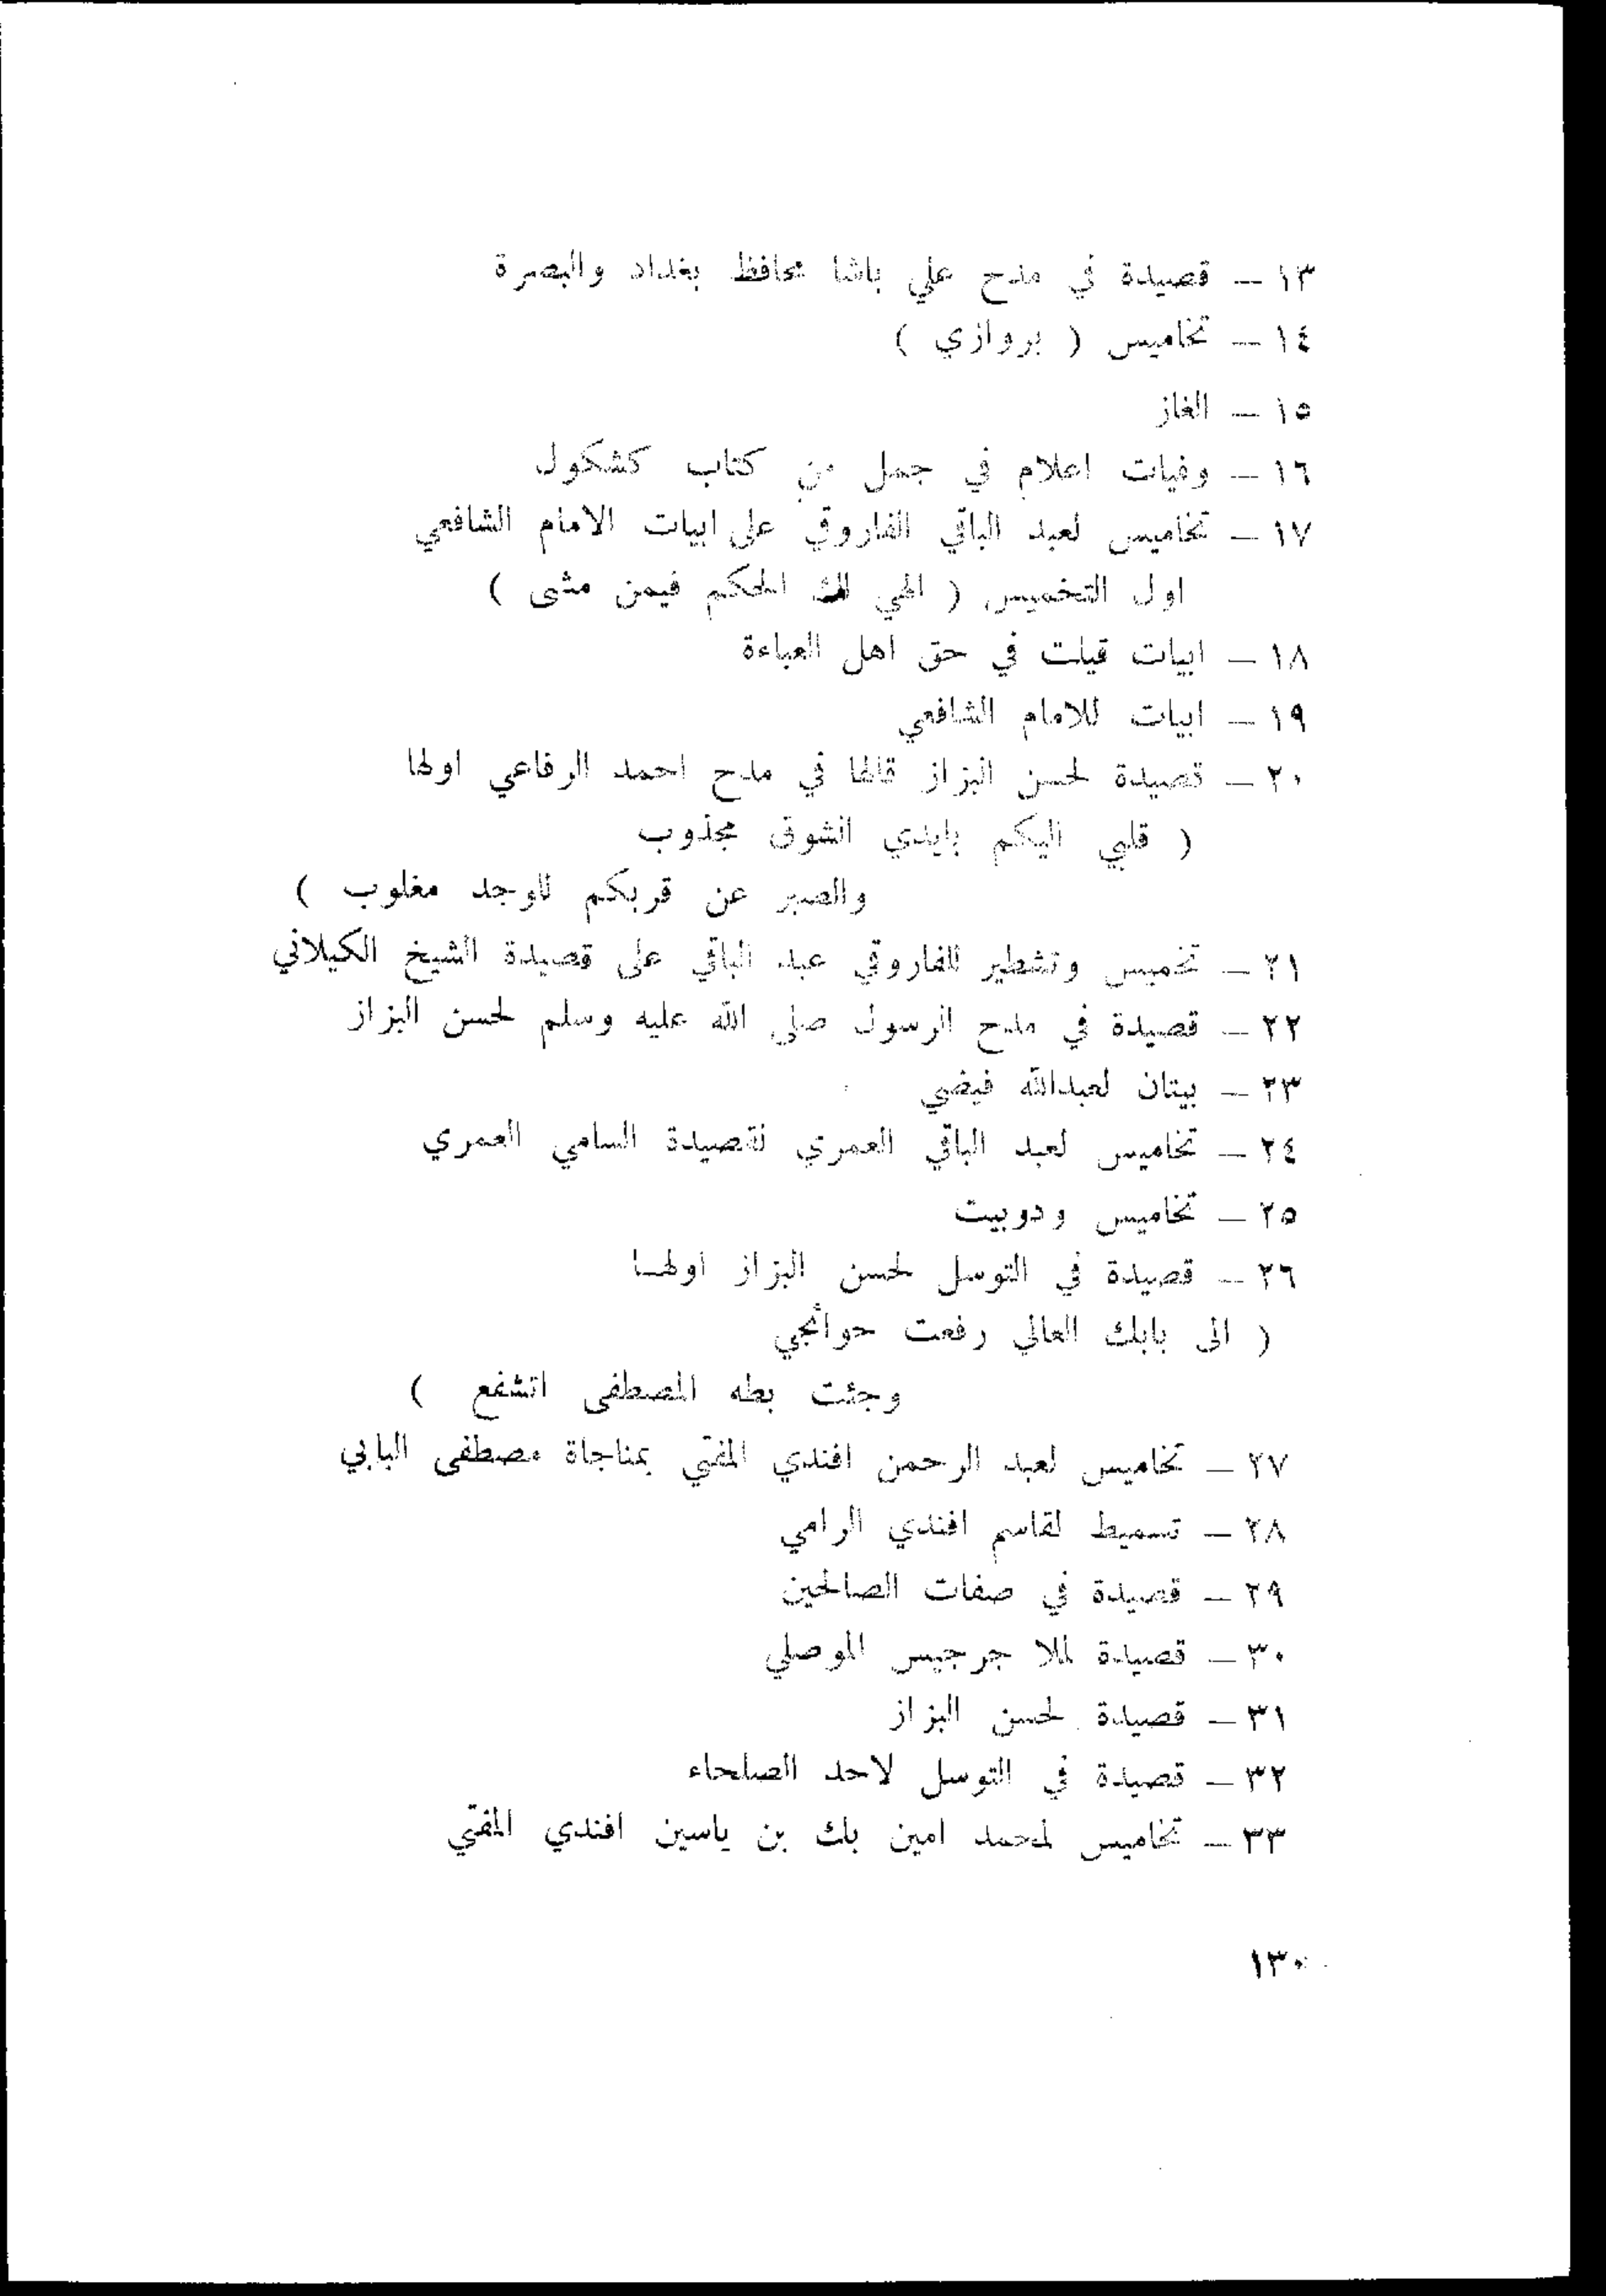 ١٣ – قصيدة في مدح علي باشا محافظ بغداد والبصرة
١٤ – تخاميس ( بروازي )
١٥ – الغاز
١٦ – وفيات اعلام في جمل من كتاب كشكول
١٧ – تخاميس لعبد الباقي الفاروقي على ابيات الامام الشافعي
اول التخميس ( الهي لك الحكم فيمن مشى )
١٨ – ابيات قيلت في حق اهل العباءة
١٩ – ابيات للامام الشافعي
٢٠ – قصيدة لحسن البزاز قالها في مدح احمد الرفاعي اولها
( قلبي اليكم بايدي الشوق مجذوب
والصبر عن قربكم للوجد مغلوب )
٢١ – تخميس وتشطير للفاروقي عبد الباقي على قصيدة الشيخ الكيلاني
٢٢ – قصيدة في مدح الرسول صلى الله عليه وسلم لحسن البزاز
٢٣ – بيتان لعبدالله فيضي
٢٤ – تخاميس لعبد الباقي العمري لقصيدة السامي العمري
٢٥ – تخاميس ودوبيت
٢٦ – قصيدة في التوسل لحسن البزاز اولهـا
( الى بابك العالي رفعت حوائجي
وجئت بطه المصطفى اتشفع )
٢٧ – تخاميس لعبد الرحمن افندي المفتي بمناجاة مصطفى البابي
٢٨ – تسميط لقاسم افندي الرامي
٢٩ – قصيدة في صفات الصالحين
٣٠ – قصيدة لملا جرجيس الموصلي
٣١ – قصيدة لحسن البزاز
٣٢ – قصيدة في التوسل لاحد الصلحاء
٣٣ – تخاميس لمحمد امين بك بن ياسين افندي المفتي
١٣٠